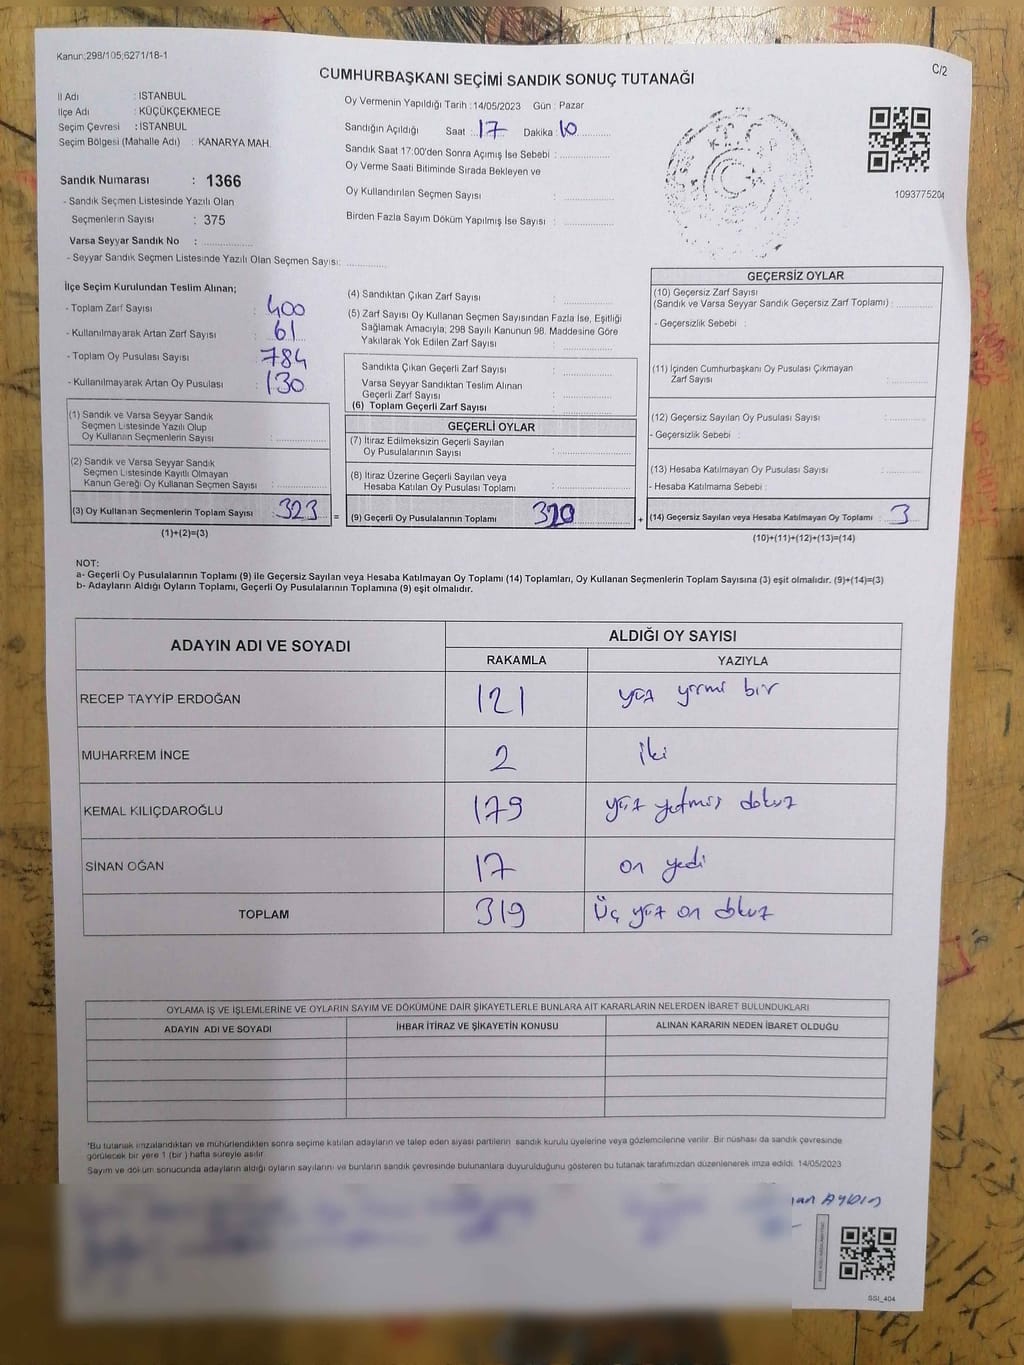 Kanun;298/105;6271/18-1
C/2
CUMHURBAŞKANI SEÇİMİ SANDIK SONUÇ TUTANAĞI
İl Adı : İSTANBUL
İlçe Adı : KÜÇÜKÇEKMECE
Seçim Çevresi : İSTANBUL
Seçim Bölgesi (Mahalle Adı) : KANARYA MAH.
Sandık Numarası : 1366
- Sandık Seçmen Listesinde Yazılı Olan
Seçmenlerin Sayısı : 375
Varsa Seyyar Sandık No :
- Seyyar Sandık Seçmen Listesinde Yazılı Olan Seçmen Sayısı:
Oy Vermenin Yapıldığı Tarih :14/05/2023 Gün : Pazar
Sandığın Açıldığı Saat : 17 Dakika : 10
Sandık Saat 17:00'den Sonra Açımış İse Sebebi :
Oy Verme Saati Bitiminde Sırada Bekleyen ve
Oy Kullandırılan Seçmen Sayısı :
Birden Fazla Sayım Döküm Yapılmış İse Sayısı :
1093775204
İlçe Seçim Kurulundan Teslim Alınan;
- Toplam Zarf Sayısı : 400
- Kullanılmayarak Artan Zarf Sayısı : 61
- Toplam Oy Pusulası Sayısı : 784
- Kullanılmayarak Artan Oy Pusulası : 130
(1) Sandık ve Varsa Seyyar Sandık
Seçmen Listesinde Yazılı Olup
Oy Kullanan Seçmenlerin Sayısı :
(2) Sandık ve Varsa Seyyar Sandık
Seçmen Listesinde Kayıtlı Olmayan
Kanun Gereği Oy Kullanan Seçmen Sayısı :
(3) Oy Kullanan Seçmenlerin Toplam Sayısı : 323 =
(1)+(2)=(3)
(4) Sandıktan Çıkan Zarf Sayısı :
(5) Zarf Sayısı Oy Kullanan Seçmen Sayısından Fazla İse, Eşitliği
Sağlamak Amacıyla; 298 Sayılı Kanunun 98. Maddesine Göre
Yakılarak Yok Edilen Zarf Sayısı :
Sandıkta Çıkan Geçerli Zarf Sayısı :
Varsa Seyyar Sandıktan Teslim Alınan
Geçerli Zarf Sayısı :
(6) Toplam Geçerli Zarf Sayısı :
GEÇERLİ OYLAR
(7) İtiraz Edilmeksizin Geçerli Sayılan
Oy Pusulalarının Sayısı :
(8) İtiraz Üzerine Geçerli Sayılan veya
Hesaba Katılan Oy Pusulası Toplamı :
(9) Geçerli Oy Pusulalarının Toplamı : 320 +
GEÇERSİZ OYLAR
(10) Geçersiz Zarf Sayısı
(Sandık ve Varsa Seyyar Sandık Geçersiz Zarf Toplamı) :
- Geçersizlik Sebebi :
(11) İçinden Cumhurbaşkanı Oy Pusulası Çıkmayan
Zarf Sayısı :
(12) Geçersiz Sayılan Oy Pusulası Sayısı :
- Geçersizlik Sebebi :
(13) Hesaba Katılmayan Oy Pusulası Sayısı :
- Hesaba Katılmama Sebebi :
(14) Geçersiz Sayılan veya Hesaba Katılmayan Oy Toplamı : 3
(10)+(11)+(12)+(13)=(14)
NOT:
a- Geçerli Oy Pusulalarının Toplamı (9) ile Geçersiz Sayılan veya Hesaba Katılmayan Oy Toplamı (14) Toplamları, Oy Kullanan Seçmenlerin Toplam Sayısına (3) eşit olmalıdır. (9)+(14)=(3)
b- Adayların Aldığı Oyların Toplamı, Geçerli Oy Pusulalarının Toplamına (9) eşit olmalıdır.
ADAYIN ADI VE SOYADI
ALDIĞI OY SAYISI
RAKAMLA YAZIYLA
RECEP TAYYİP ERDOĞAN 121 yüz yirmi bir
MUHARREM İNCE 2 iki
KEMAL KILIÇDAROĞLU 179 yüz yetmiş dokuz
SİNAN OĞAN 17 on yedi
TOPLAM 319 Üç yüz on dokuz
OYLAMA İŞ VE İŞLEMLERİNE VE OYLARIN SAYIM VE DÖKÜMÜNE DAİR ŞİKAYETLERLE BUNLARA AİT KARARLARIN NELERDEN İBARET BULUNDUKLARI
ADAYIN ADI VE SOYADI İHBAR İTİRAZ VE ŞİKAYETİN KONUSU ALINAN KARARIN NEDEN İBARET OLDUĞU
*Bu tutanak imzalandıktan ve mühürlendikten sonra seçime katılan adayların ve talep eden siyasi partilerin sandık kurulu üyelerine veya gözlemcilerine verilir. Bir nüshası da sandık çevresinde
görülecek bir yere 1 (bir ) hafta süreyle asılır.
Sayım ve döküm sonucunda adayların aldığı oyların sayılarını ve bunların sandık çevresinde bulunanlara duyurulduğunu gösteren bu tutanak tarafımızdan düzenlenerek imza edildi. 14/05/2023
SSI_404